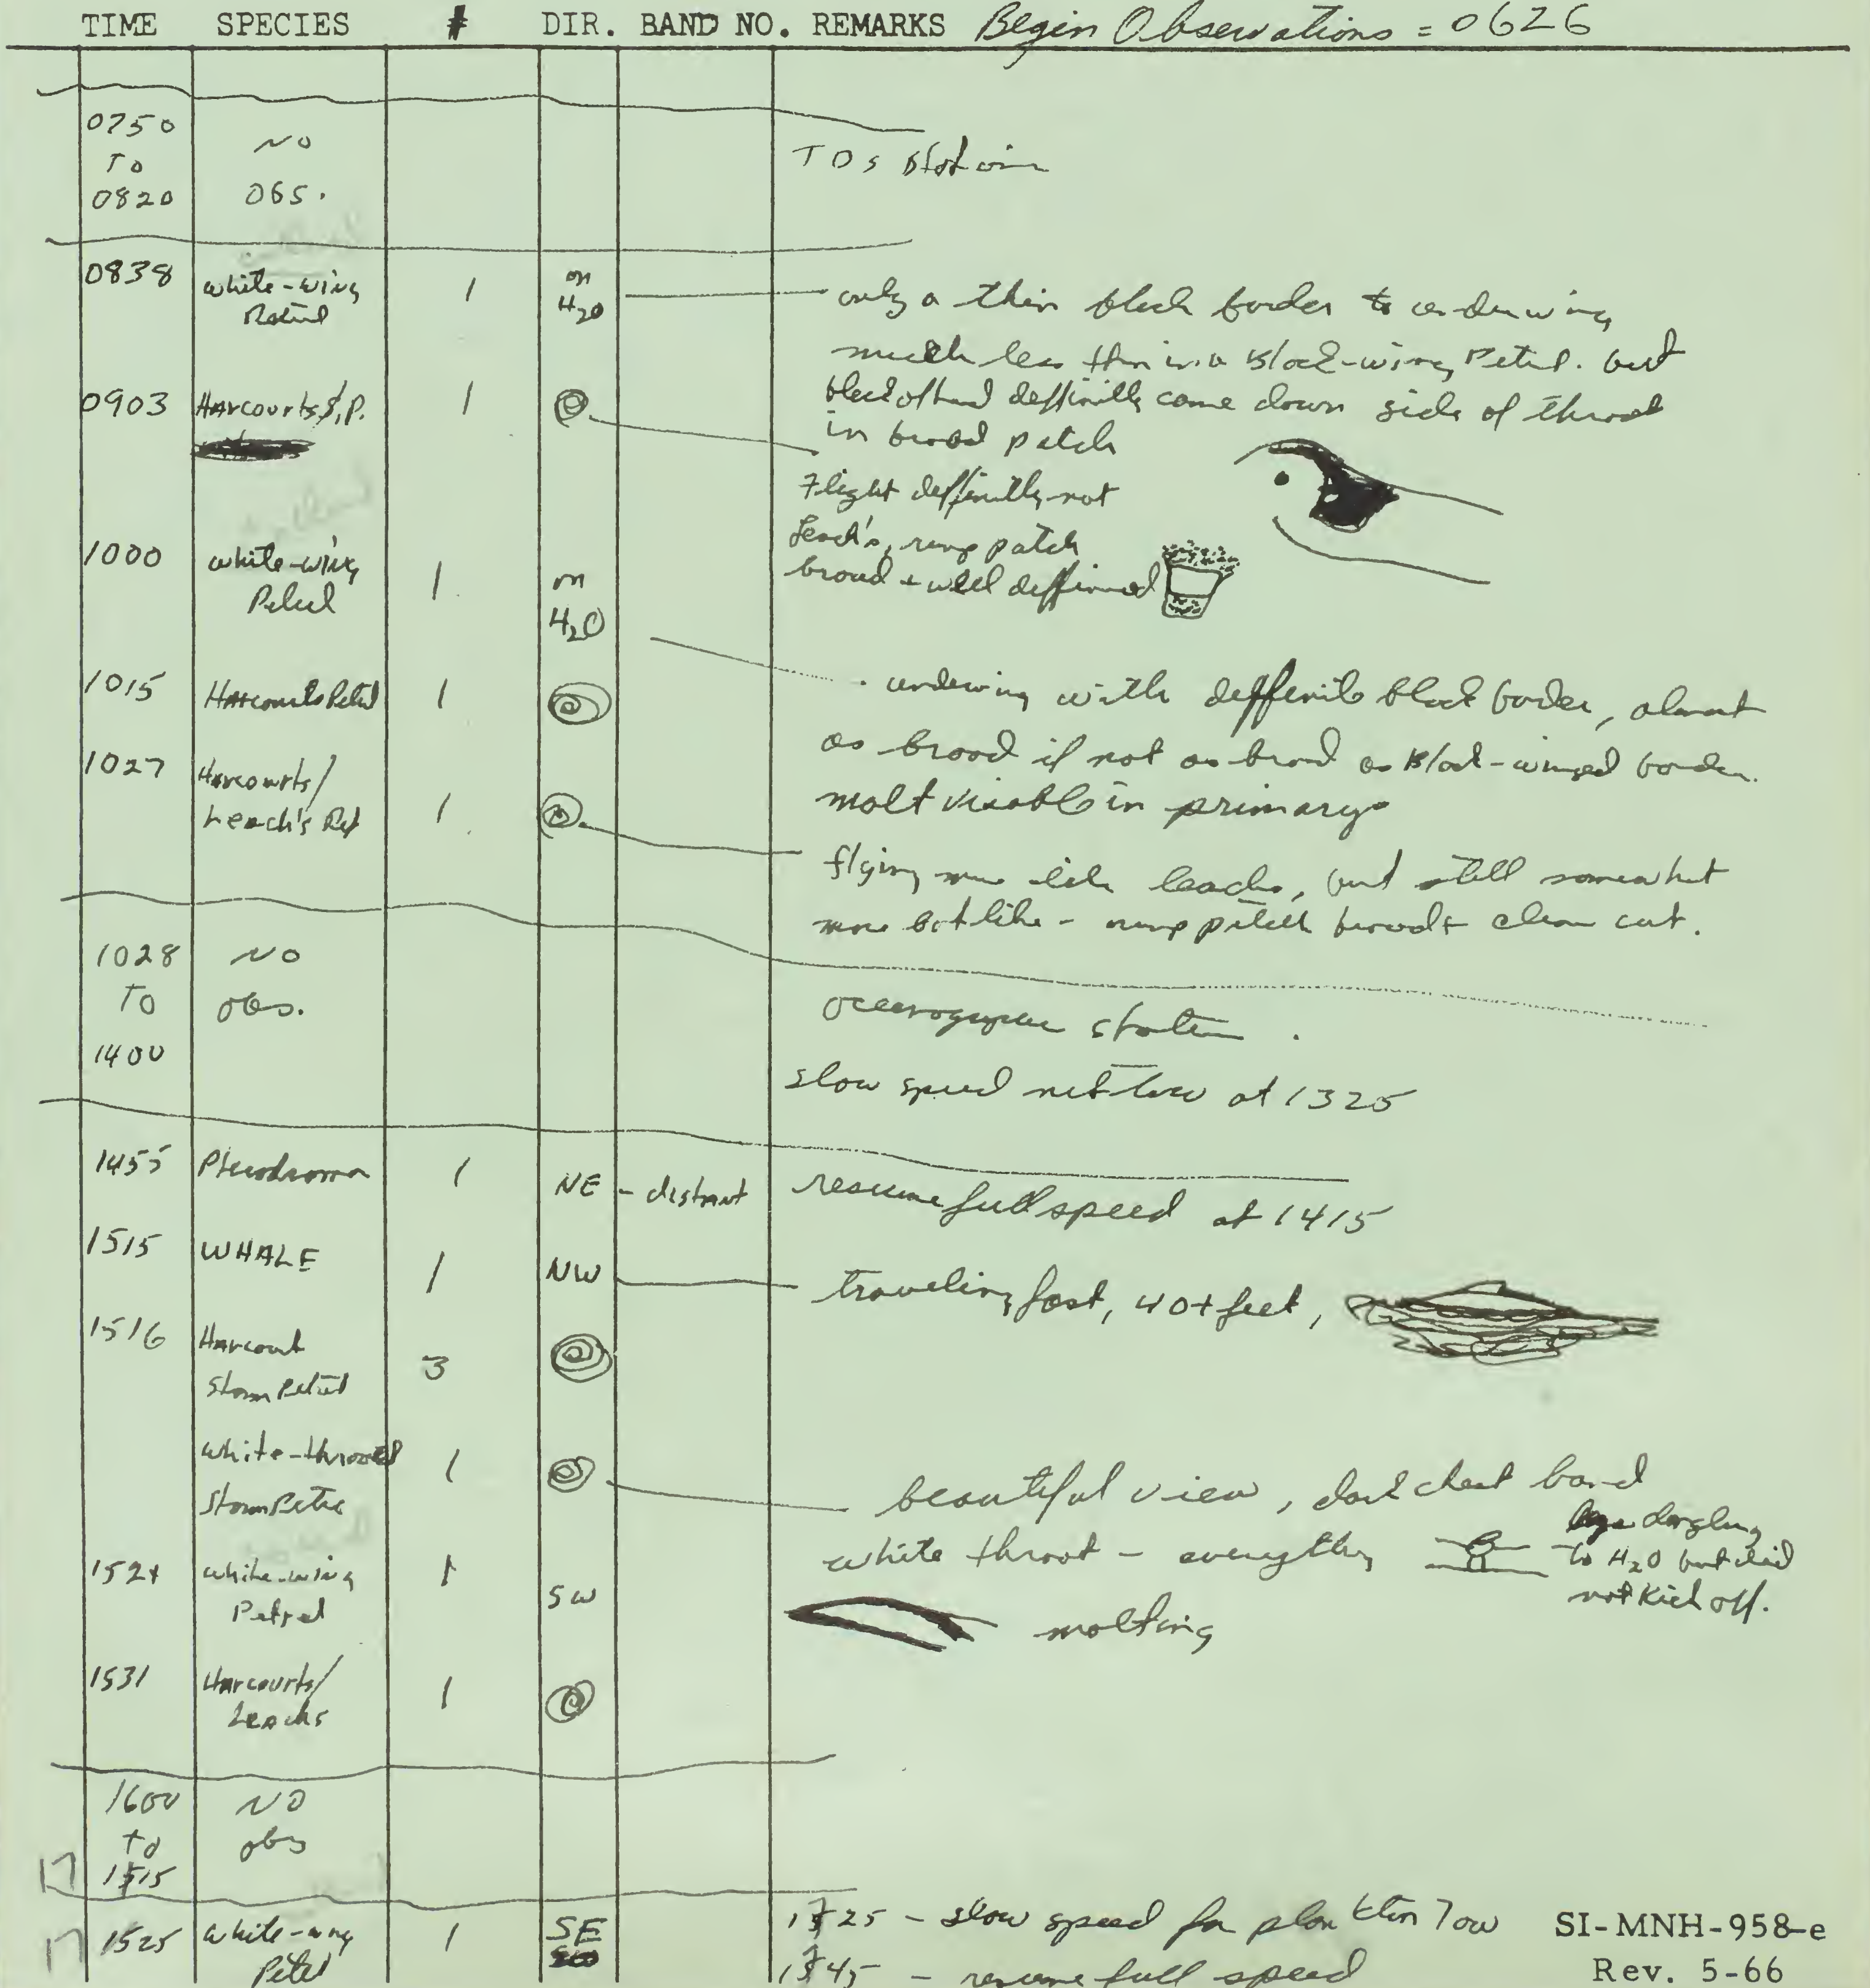 TIME SPECIES # DIR. BAND NO. REMARKS Begin Observations = 0626
0750
To
0820
NO
OBS.
TDs Station
0838 white-wing
Petrel
1
on
H2O
only a thin black border to underwing
much less than in a Black-wing Petrel. but
black of head deffinitly come down side of throat
in broad patch
0903 Harcourts S.P. 1
Flight deffinitly not
Leach's, rump patch
broad + well deffinned
1000 white-wing
Petrel
1
on
H2O
underwing with deffenite black border, almost
as broad if not as broad as Black-winged border.
molt visable in primarys
1015 Harcourts Petrel 1
1027 Harcourts/
Leach's Pet
1
flying more like leachs, but still somewhat
more bat like - rump patch broad + clean cut.
1028
To
1400
NO
obs.
oceanographic station.
slow speed net tow at 1325
1455 Pterodroma 1 NE - distant
resume full speed at 1415
1515 WHALE 1 NW
traveling fast, 40+ feet,
1516 Harcourt
Storm Petrel
3
white-throated
Storm Petre
1
beautiful view, dark chest band
white throat - everything
legs dangling
to H2O but did
not Kick off.
1524 white-wing
Petrel
1 SW
molting
1531 Harcourts/
Leachs
1
1600
to
17 1515
NO
obs
17 1525 white-wing
Petrel
1 SE
1725 - slow speed for plankton Tow
1745 - resume full speed
SI-MNH-958-e
Rev. 5-66